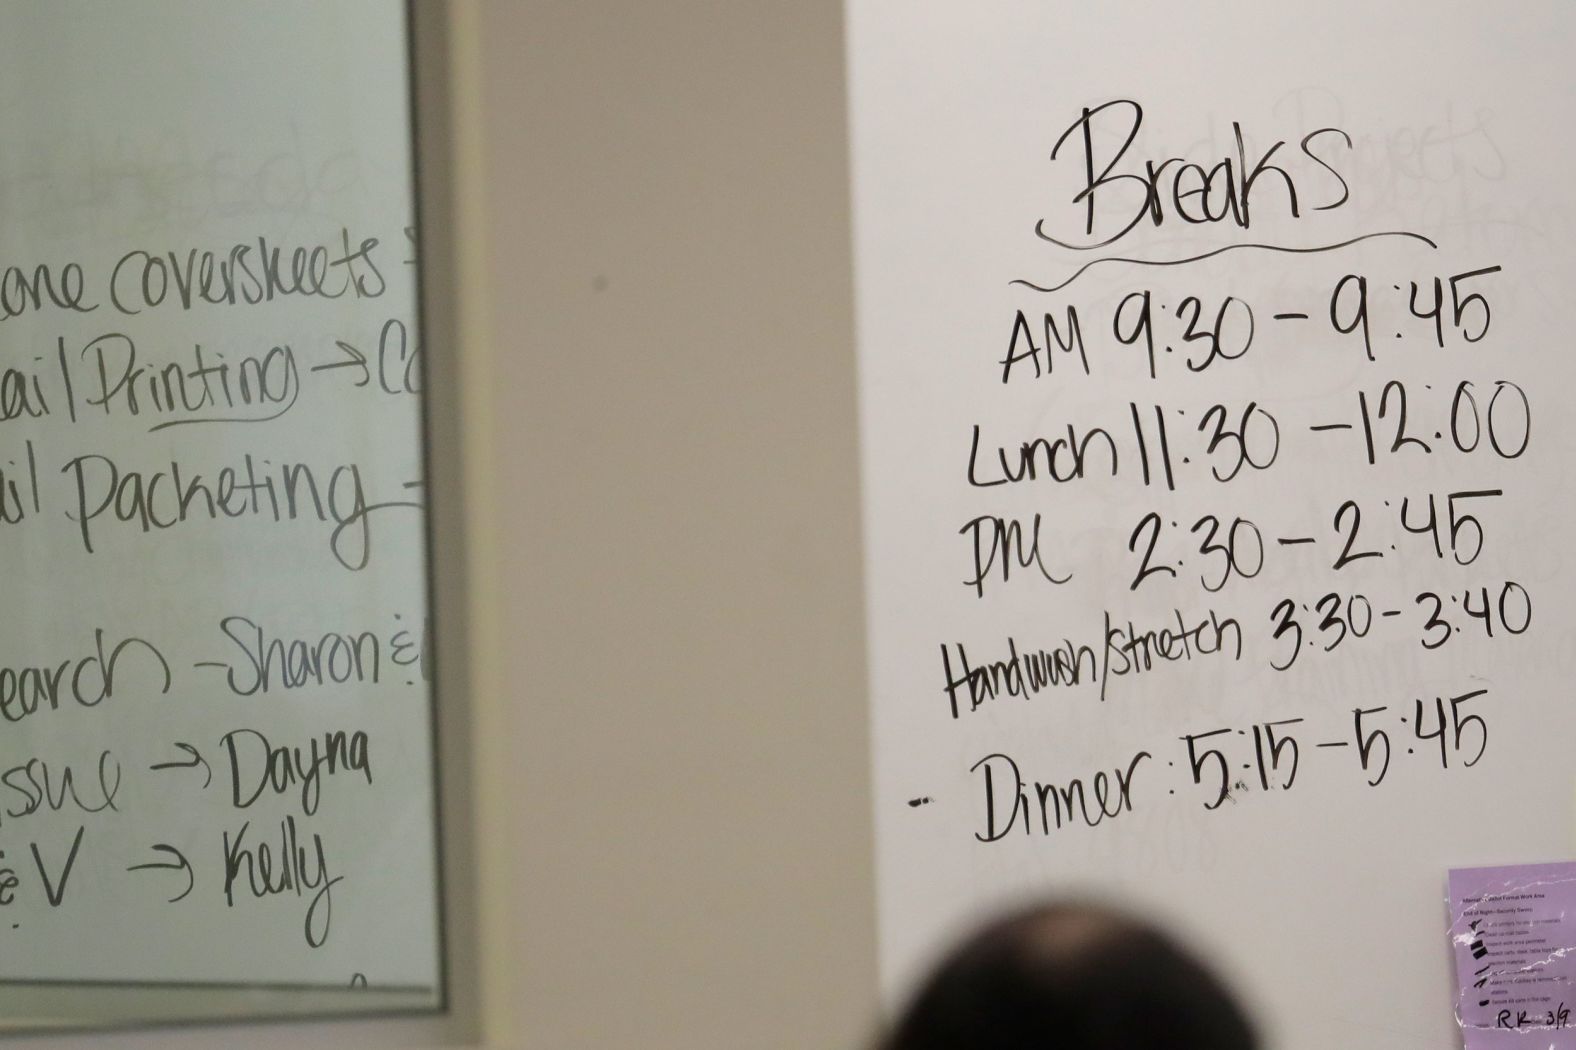 one coversheets
ail Printing →
il Packeting -
earch - Sharon &
ssue → Dayna
& V → Kelly
Breaks
AM 9:30 - 9:45
Lunch 11:30 - 12:00
PM 2:30 - 2:45
Handwash/Stretch 3:30 - 3:40
- Dinner: 5:15 - 5:45
Format Work Area
End of Night - Security Sweep
RK 3/9